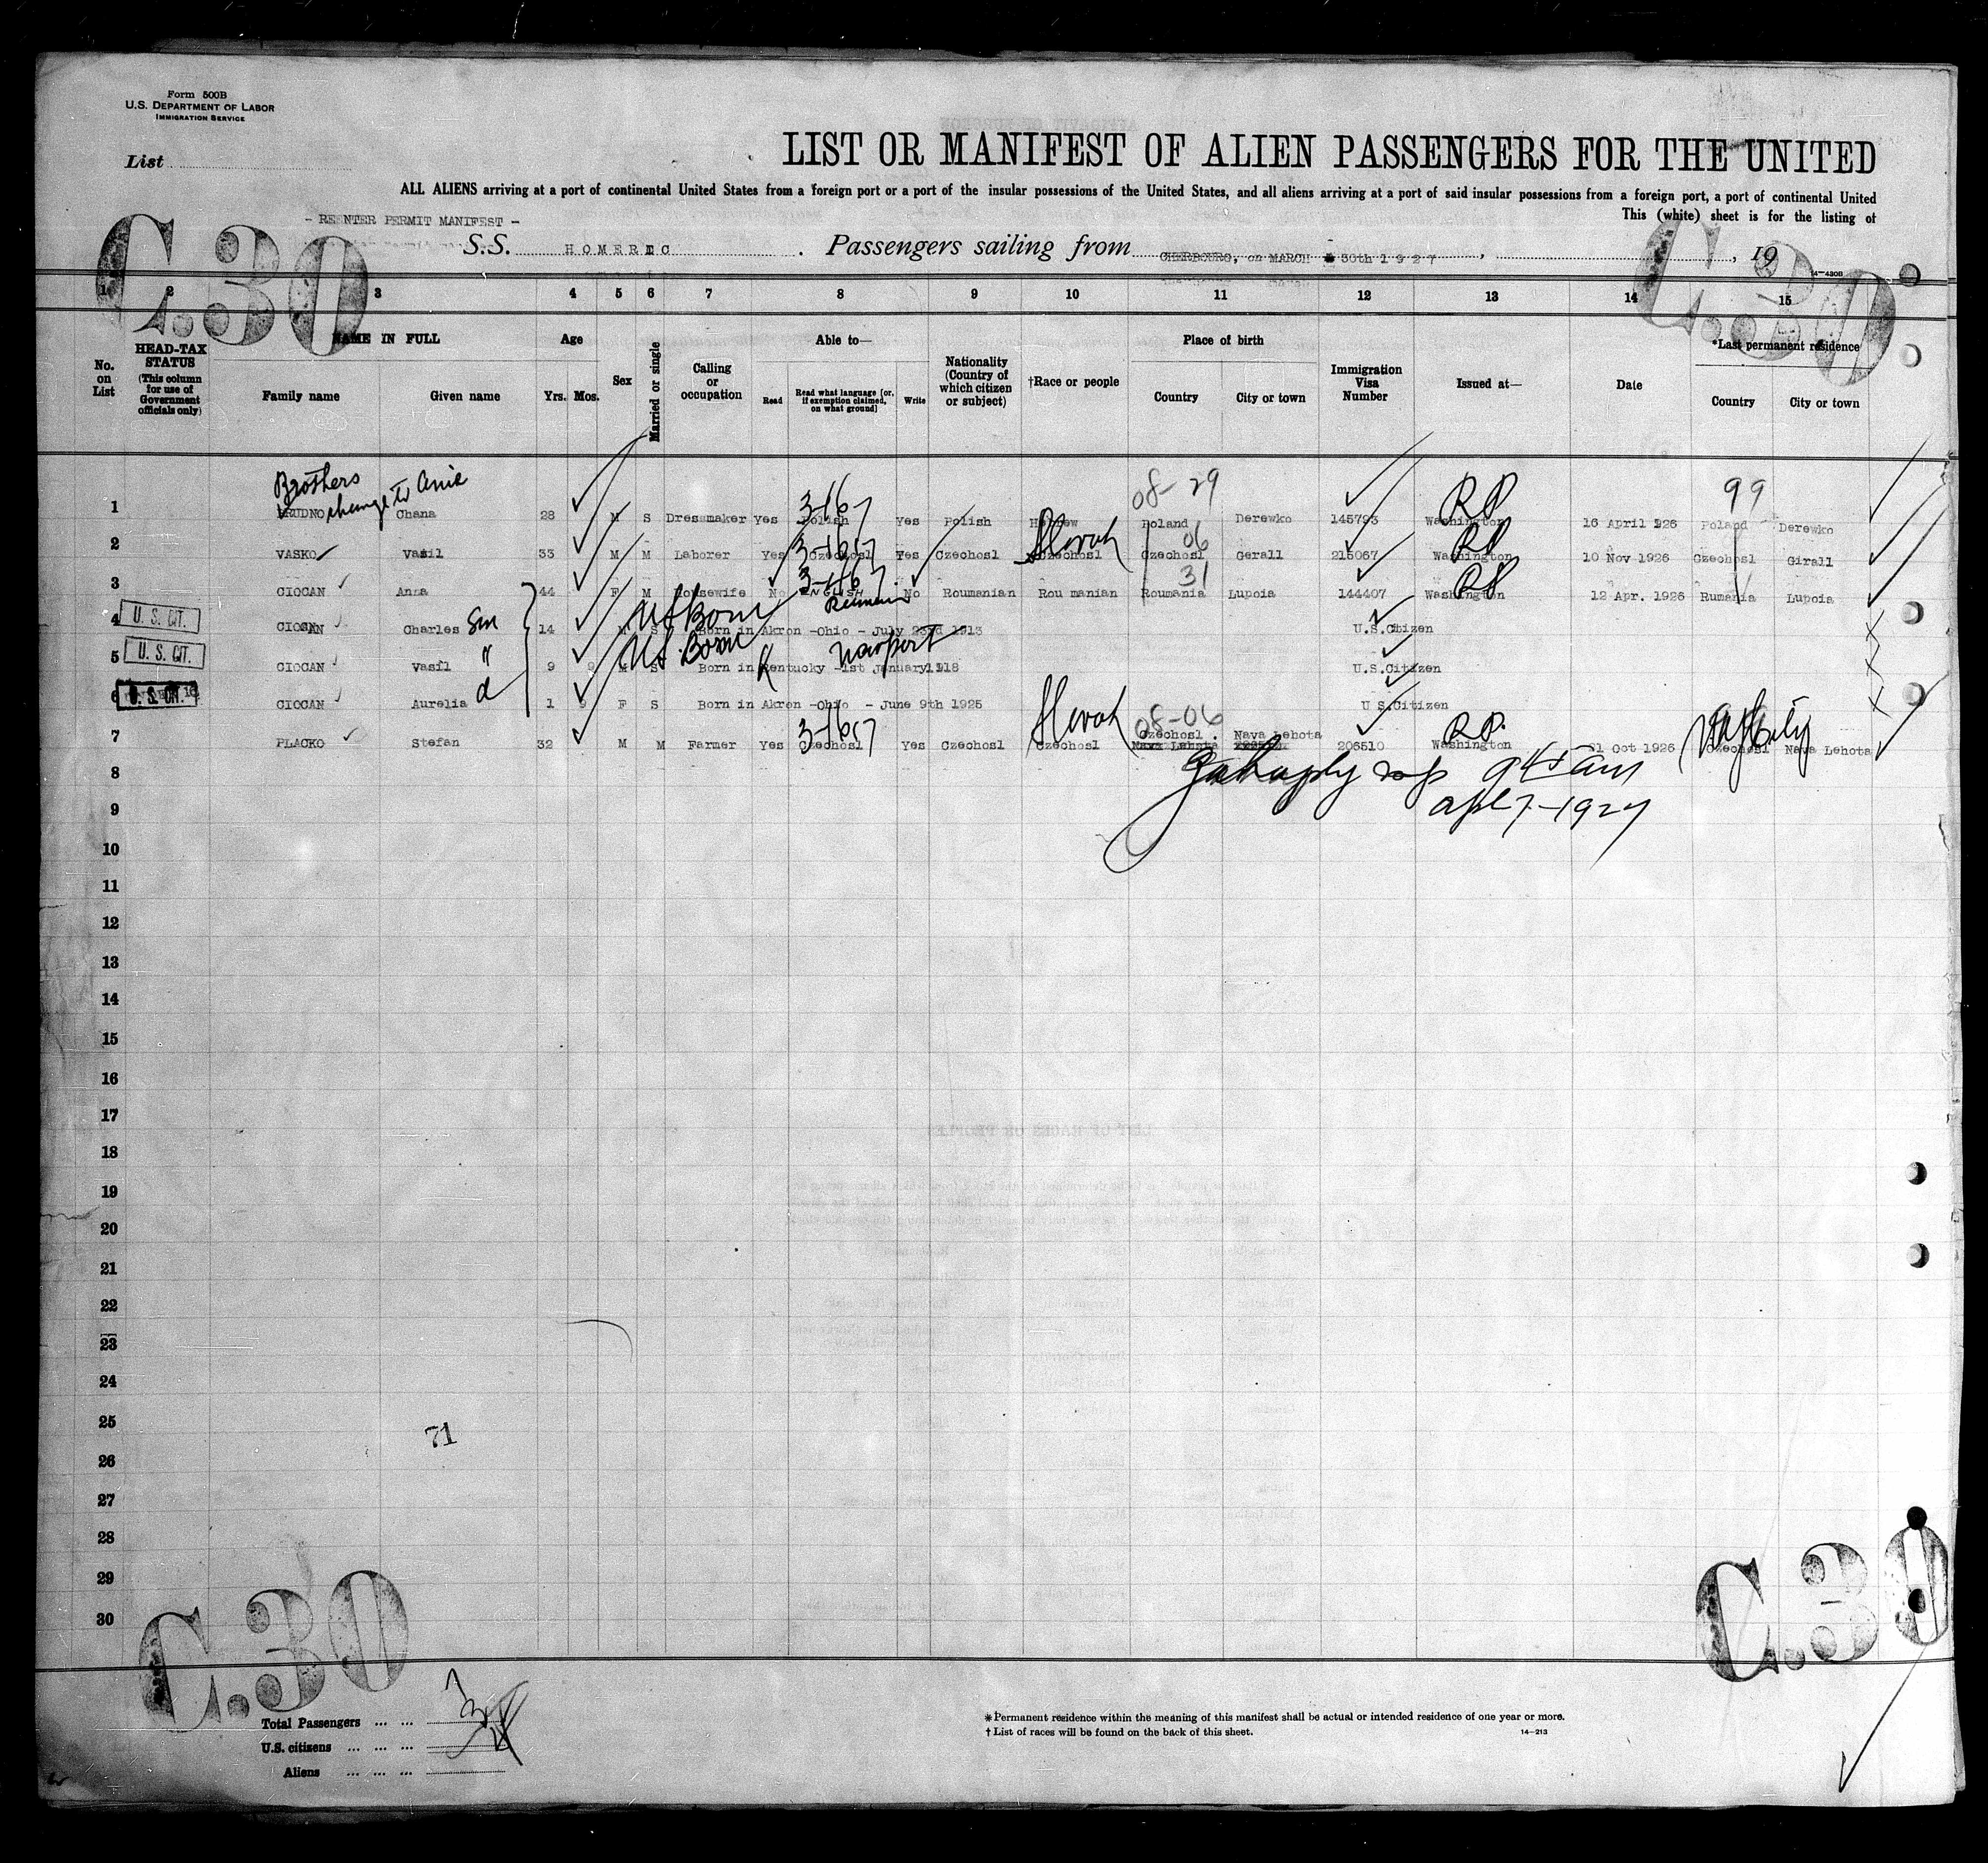 Form 500B
U.S. DEPARTMENT OF LABOR
IMMIGRATION SERVICE
List
LIST OR MANIFEST OF ALIEN PASSENGERS FOR THE UNITED
ALL ALIENS arriving at a port of continental United States from a foreign port or a port of the insular possessions of the United States, and all aliens arriving at a port of said insular possessions from a foreign port, a port of continental United
This (white) sheet is for the listing of
- REENTER PERMIT MANIFEST -
S.S. HOMERIC. Passengers sailing from CHERBOURG, on MARCH 30th 1927, , 19
C.30 C.30
14-430B
1 2 3 4 5 6 7 8 9 10 11 12 13 14 15
No. on List
HEAD-TAX STATUS (This column for use of Government officials only)
NAME IN FULL
Family name Given name
Age
Yrs. Mos.
Sex
Married or single
Calling or occupation
Able to—
Read Read what language [or, if exemption claimed, on what ground] Write
Nationality (Country of which citizen or subject)
†Race or people
Place of birth
Country City or town
Immigration Visa Number
Issued at—
Date
*Last permanent residence
Country City or town
Brothers
change to
08-29 99
1 Chana 28 M S Dressmaker Yes Polish 3-167 Yes Polish Hebrew Poland Derewko 145793 Washington RP 16 April 926 Poland Derewko
2 VASKO Vasil 33 M M Laborer Yes Czechosl Yes Czechosl Czechosl Slovak Czechosl 06 Gerall 215067 Washington RP 10 Nov 1926 Czechosl Girall
3 CIOCAN Anna 44 F M Housewife No ENGLISH No Roumanian Rou manian Roumania 31 Lupoia 144407 Washington RP 12 Apr. 1926 Rumania Lupoia
4 U. S. CIT. Charles Son 14 M S US Born Born in Akron -Ohio - July 23rd 1913 U.S.Citizen
5 U. S. CIT. CIOCAN Vasil " 9 9 M S US Born Born in Kentucky -1st January1918 Newport U.S.Citizen
6 U. S. CIT. CIOCAN Aurelia d 1 9 F S Born in Akron -Ohio - June 9th 1925 U S.Citizen
7 PLACKO Stefan 32 M M Farmer Yes Czechosl Yes Czechosl Czechosl Slovak 08-06 Czechosl. Nava Lehota 206510 Washington R.P. 21 Oct 1926 Czechosl Nava Lehota
8
9 1927
10
11
12
13
14
15
16
17
18
19
20
21
22
23
24
25
71
26
27
28
29
30
C.30 C.30
Total Passengers ... ...
U.S. citizens ... ... ...
Aliens ... ... ...
*Permanent residence within the meaning of this manifest shall be actual or intended residence of one year or more.
†List of races will be found on the back of this sheet.
14-213